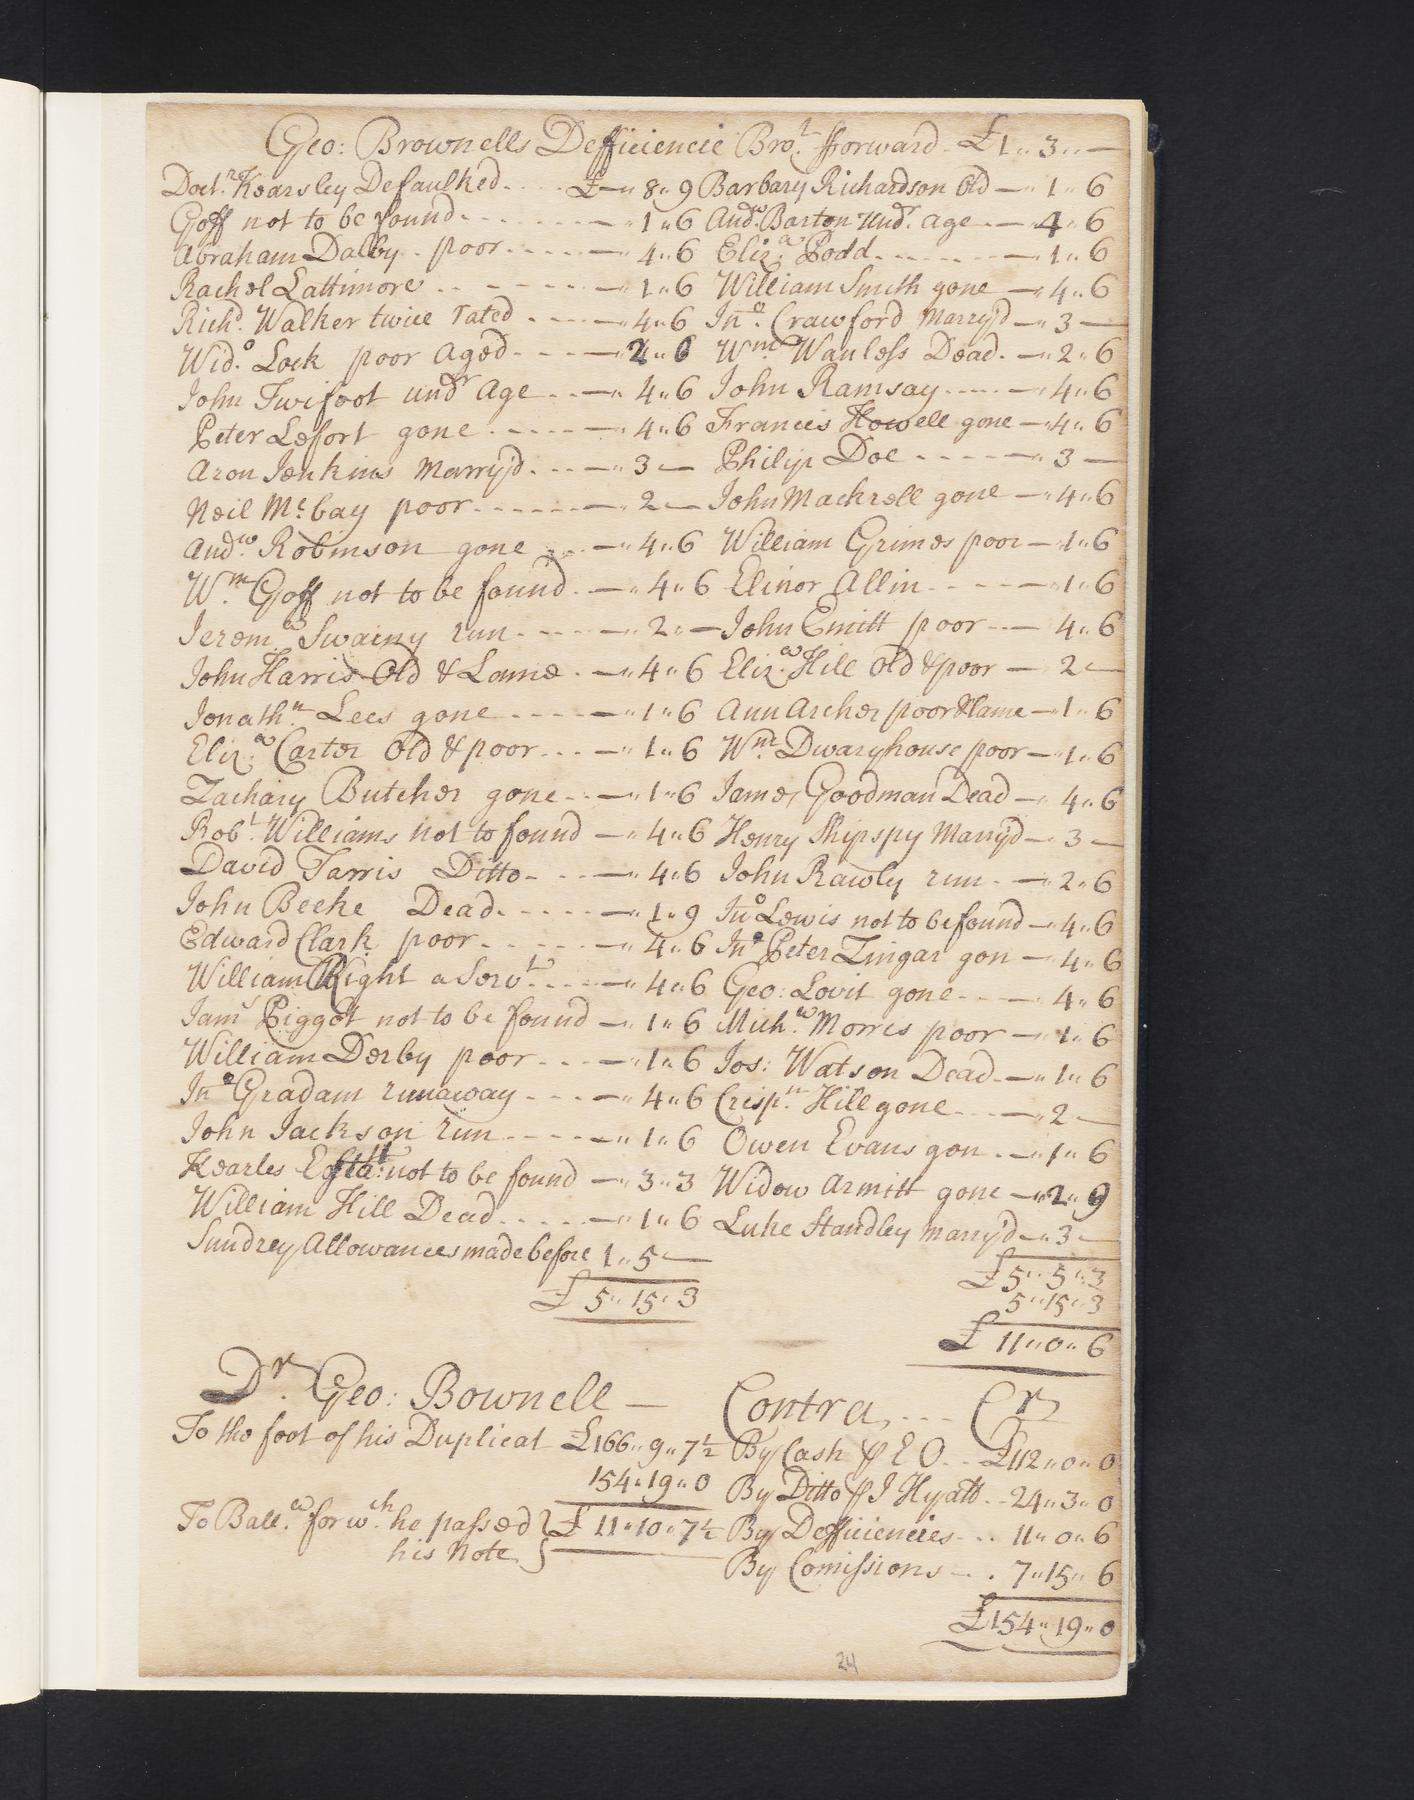 Geo: Brownells Defficiencie Bro.t fforward - £1 " 3 " —
Doct.r Kearsley Defaulked .... £— " 8 " 9
Goff not to be found - - - - - " 1 " 6
Abraham Dalby - poor - - - - — " 4 " 6
Rachel Lattimore - - - - - — " 1 " 6
Rich.d Walker twice rated - - - — " 4 " 6
Wid.o Lock poor Aged - - - — " 2 " 6
John Twifoot und.r Age - - — " 4 " 6
Peter Lefort gone - - - - — " 4 " 6
Aron Jenkins Marry'd - - - — " 3 " —
Neil M.cbay poor - - - - — " 2 " —
And.w Robinson gone - - — " 4 " 6
W.m Goff not to be found - — " 4 " 6
Jerem.a Swainy run - - - - — " 2 " —
John Harris Old & Lame - — " 4 " 6
Jonath.n Lees gone - - - - — " 1 " 6
Eliz.a Carter Old & poor - - - — " 1 " 6
Zachary Butcher gone - - — " 1 " 6
Rob.t Williams not to found — " 4 " 6
David Farris Ditto - - - — " 4 " 6
John Beeke Dead - - - - — " 1 " 9
Edward Clark poor - - - - — " 4 " 6
William Right a Serv.t - - - — " 4 " 6
Jam.s Piggot not to be found — " 1 " 6
William Derby poor - - - — " 1 " 6
Jn.o Gradam runaway - - - — " 4 " 6
John Jackson run - - - - — " 1 " 6
Kearles not to be found — " 3 " 3
William Hill Dead - - - - — " 1 " 6
Sundrey Allowances made before 1 " 5 " —
£ 5 " 15 " 3
Barbary Richardson Old — " 1 " 6
And.w Barton Und.r age - — " 4 " 6
Eliz.a Podd - - - - - — " 1 " 6
William Smith gone — " 4 " 6
Jn.o Crawford Marry'd — " 3 —
W.m Wanless Dead - — " 2 " 6
John Ramsay - - - - — " 4 " 6
Francis Howell gone — " 4 " 6
Philip Doe - - - - — " 3 —
John Mackrell gone — " 4 " 6
William Grimes poor — " 1 " 6
Elinor Allin - - - - — " 1 " 6
John Emitt poor - - — 4 " 6
Eliz.a Hill Old & poor — 2 " —
Ann Archer poor & lame — " 1 " 6
W.m Dwaryhouse poor — " 1 " 6
James Goodman Dead — " 4 " 6
Henry Shipspy Marry'd — " 3 —
John Rawly run - — " 2 " 6
Jn.o Lewis not to be found — " 4 " 6
Jn.o Peter Zingar gon — " 4 " 6
Geo: Lovit gone - - - — 4 " 6
Mich.a Morris poor — " 1 " 6
Jos: Watson Dead - — " 1 " 6
Crisp.n Hill gone - - - — " 2 —
Owen Evans gon - — " 1 " 6
Widow Armitt gone — " 2 " 9
Luke Standley Marry'd — " 3 —
£ 5 " 5 " 3
5 " 15 " 3
£ 11 " 0 " 6
D.r Geo: Bownell —
To the foot of his Duplicat £166 " 9 " 7½
154 " 19 " 0
To Ball.a for w.ch he passed } £ 11 " 10 " 7½
his Note }
Contra - - - C.r
By Cash P E O - - £112 " 0 " 0
By Ditto P J Hyatt - - 24 " 3 " 0
By Defficiencies - - - 11 " 0 " 6
By Comissions - - - 7 " 15 " 6
£154 " 19 " 0
24